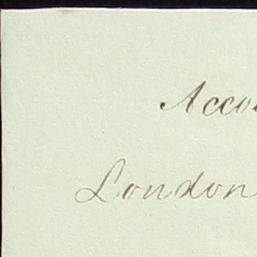 Acco
London